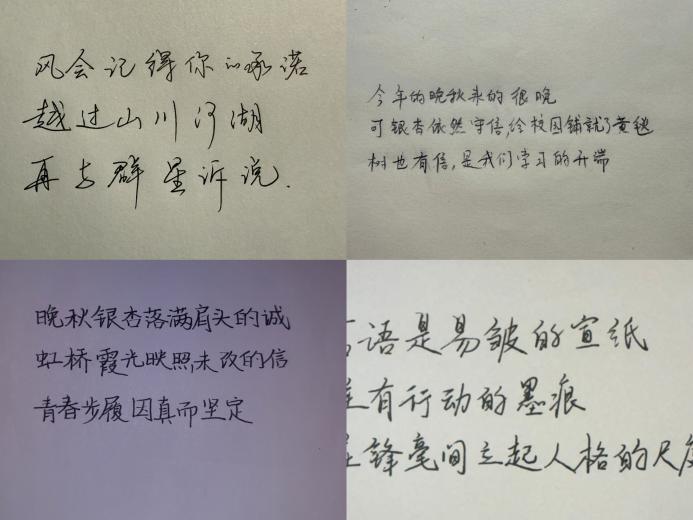 风会记得你的承诺
越过山川河湖
再与群星诉说.
今年的晚秋来的很晚
可银杏依然守信,给校园铺就了黄毯
树也有信,是我们学习的开端
晚秋银杏落满肩头的诚
虹桥霞光映照,未改的信
青春步履因真而坚定
语是易皱的宣纸
有行动的墨痕
锋毫间立起人格的尺度